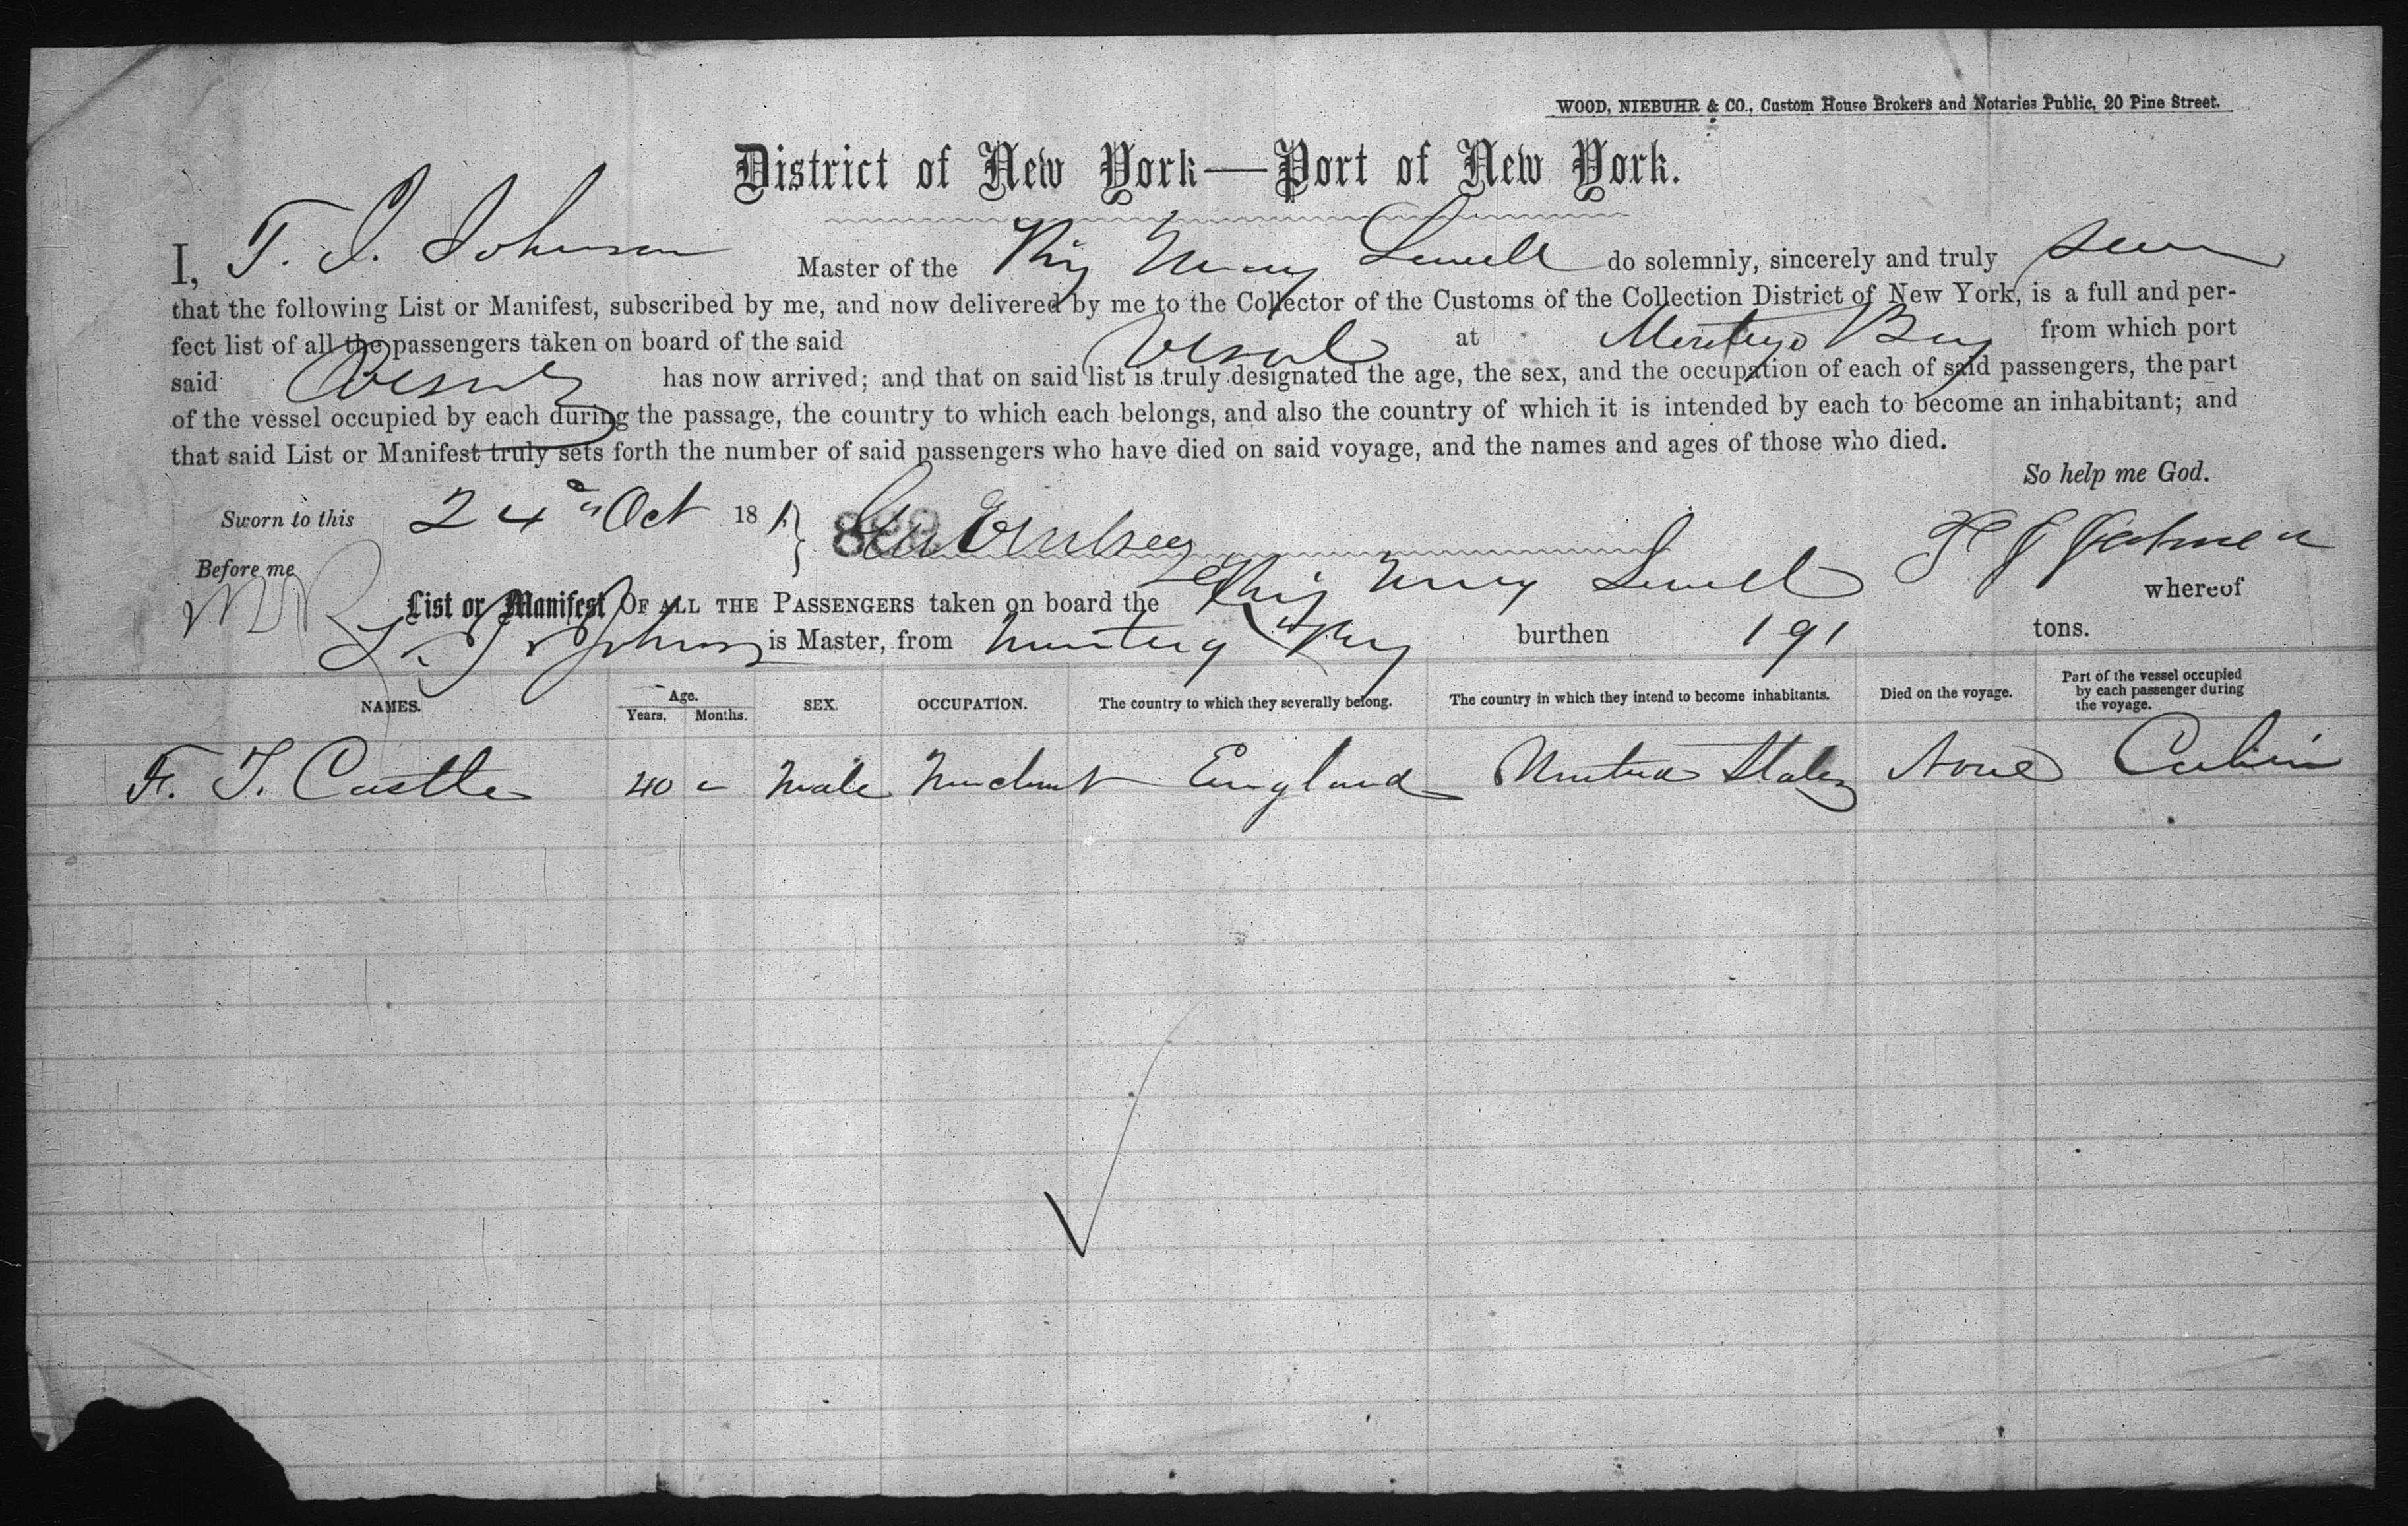 WOOD, NIEBUHR & CO., Custom House Brokers and Notaries Public, 20 Pine Street.
District of New York—Port of New York.
I, T. J. Johnson Master of the Brig Mary Lowell do solemnly, sincerely and truly swear
that the following List or Manifest, subscribed by me, and now delivered by me to the Collector of the Customs of the Collection District of New York, is a full and per-
fect list of all the passengers taken on board of the said Vessel at Montego Bay from which port
said Vessel has now arrived; and that on said list is truly designated the age, the sex, and the occupation of each of said passengers, the part
of the vessel occupied by each during the passage, the country to which each belongs, and also the country of which it is intended by each to become an inhabitant; and
that said List or Manifest truly sets forth the number of said passengers who have died on said voyage, and the names and ages of those who died.
So help me God.
Sworn to this 24th Oct 18 T J Johnson
Before me
List or Manifest OF ALL THE PASSENGERS taken on board the Brig Mary Lowell whereof
T. J. Johnson is Master, from Montego Bay burthen 191 tons.
NAMES. Age. Years. Months. SEX. OCCUPATION. The country to which they severally belong. The country in which they intend to become inhabitants. Died on the voyage. Part of the vessel occupied by each passenger during the voyage.
F. T. Castle 40 - Male Merchant England United States None Cabin